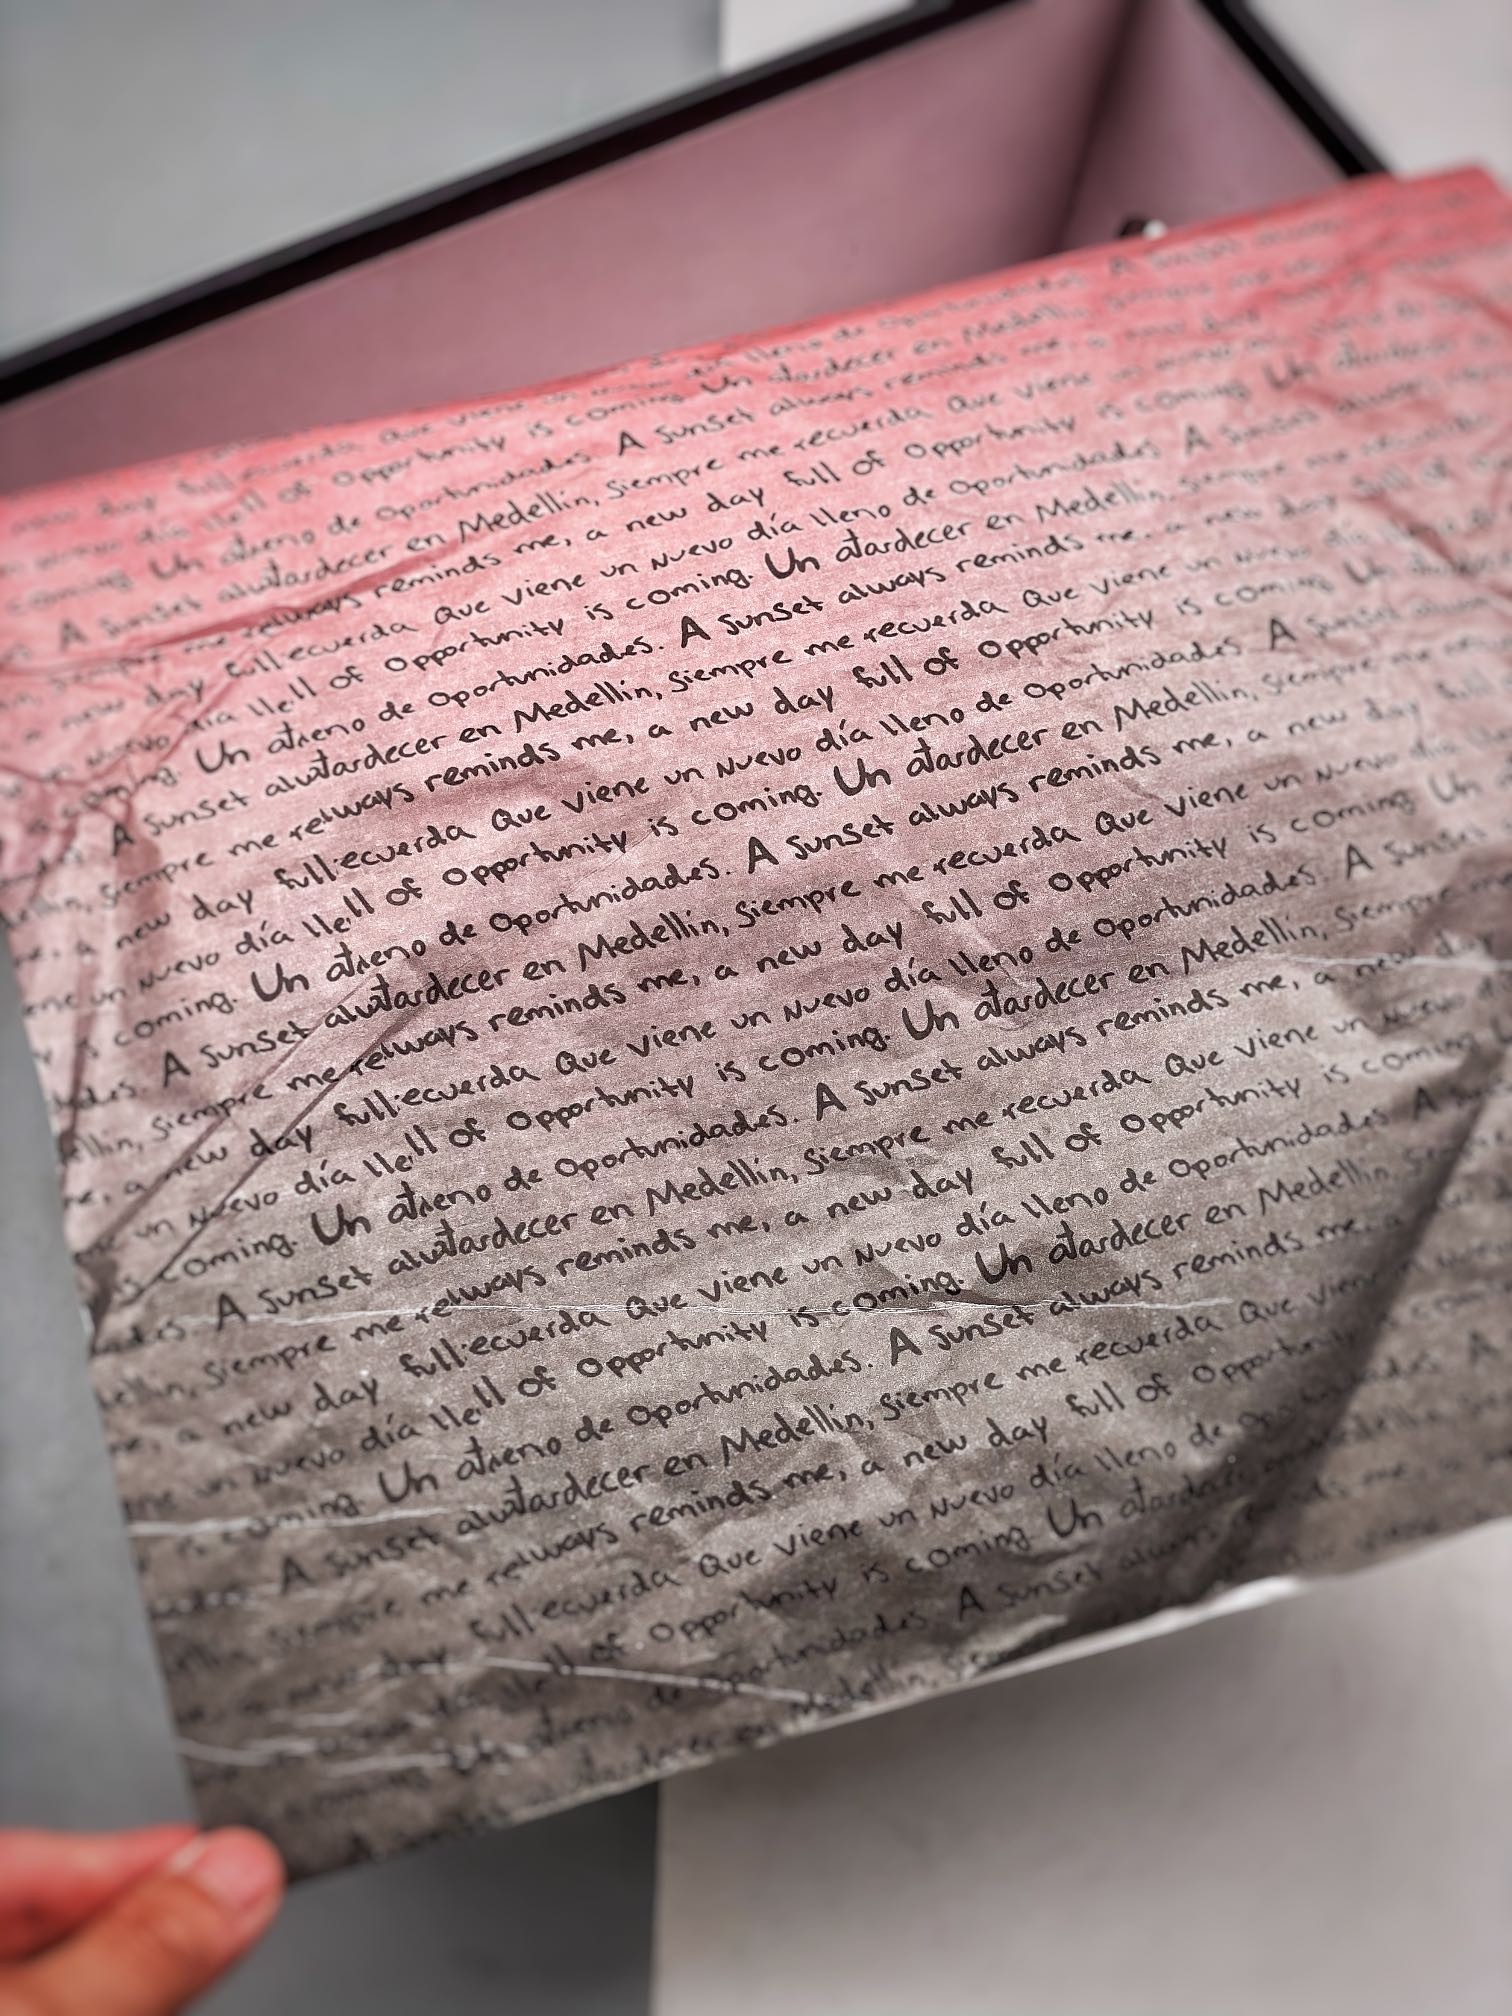 new day full ecuerda Que viene
día llell of Opportunity is coming. Un atardecer en Medellín, Siempre
coming. Un atreno de Oportunidades. A Sunset always reminds me, a new day
A Sunset alwatardecer en Medellín, Siempre me recuerda Que viene
Siempre me relways reminds me, a new day full of Opportunity is coming. Un atardecer
a new day fullecuerda Que viene un Nuevo día lleno de Oportunidades. A Sunset always
Nuevo día llell of Opportunity is coming. Un atardecer en Medellín, Siempre me recuerda
coming. Un atreno de Oportunidades. A Sunset always reminds me, a new day full of
A Sunset alwatardecer en Medellín, Siempre me recuerda Que viene un Nuevo día
Siempre me relways reminds me, a new day full of Opportunity is coming. Un
a new day fullecuerda Que viene un Nuevo día lleno de Oportunidades. A Sunset
un Nuevo día llell of Opportunity is coming. Un atardecer en Medellín, Siempre me
coming. Un atreno de Oportunidades. A Sunset always reminds me, a new day full
A Sunset alwatardecer en Medellín, Siempre me recuerda Que viene un Nuevo día
Siempre me relways reminds me, a new day full of Opportunity is coming. Un
a new day fullecuerda Que viene un Nuevo día lleno de Oportunidades. A Sunset
un Nuevo día llell of Opportunity is coming. Un atardecer en Medellín, Siempre
coming. Un atreno de Oportunidades. A Sunset always reminds me, a new day
A Sunset alwatardecer en Medellín, Siempre me recuerda Que viene un Nuevo
Siempre me relways reminds me, a new day full of Opportunity is coming
a new day fullecuerda Que viene un Nuevo día lleno de Oportunidades. A
un Nuevo día llell of Opportunity is coming. Un atardecer en Medellín,
coming. Un atreno de Oportunidades. A Sunset always reminds me, a
A Sunset alwatardecer en Medellín, Siempre me recuerda Que viene
Siempre me relways reminds me, a new day full of Opportunity
a new day fullecuerda Que viene un Nuevo día lleno de
llell of Opportunity is coming. Un atardecer
Un atreno de Oportunidades. A Sunset always
atardecer en Medellín,